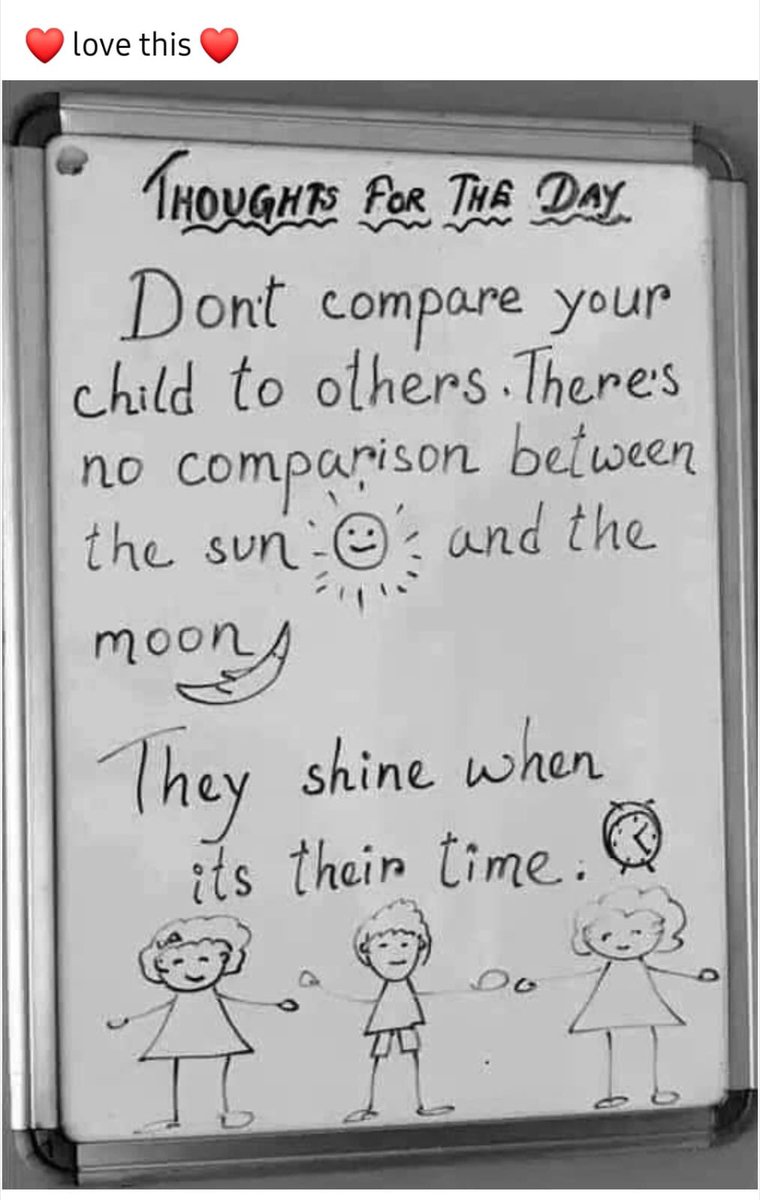 ❤️ love this ❤️
THOUGHTS FOR THE DAY
Don't compare your
child to others. There's
no comparison between
the sun and the
moon
They shine when
its their time.